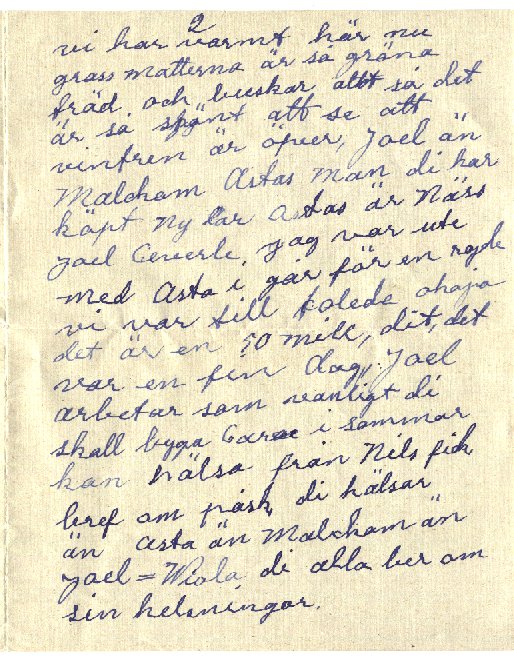 2
vi har varmt här nu
grass matterna är så gröna
träd och buskar allt så det
är så skönt att se att
vintren är öfver, Joel än
Malcham Astas man di har
köpt ny Car Astas är Närs
Joel Ceverle, jag var ute
med Asta i går för en ryde
vi var till toledo ohajo
det är en 50 mill, dit, det
var en fin dag, Joel
arbetar som vanligt di
skall byga Garae i sommar
kan hälsa från Nils fick
bref om påsk, di hälsar
än Asta än Malcham än
Joel = Wiola, di alla ber om
sin helsningar.